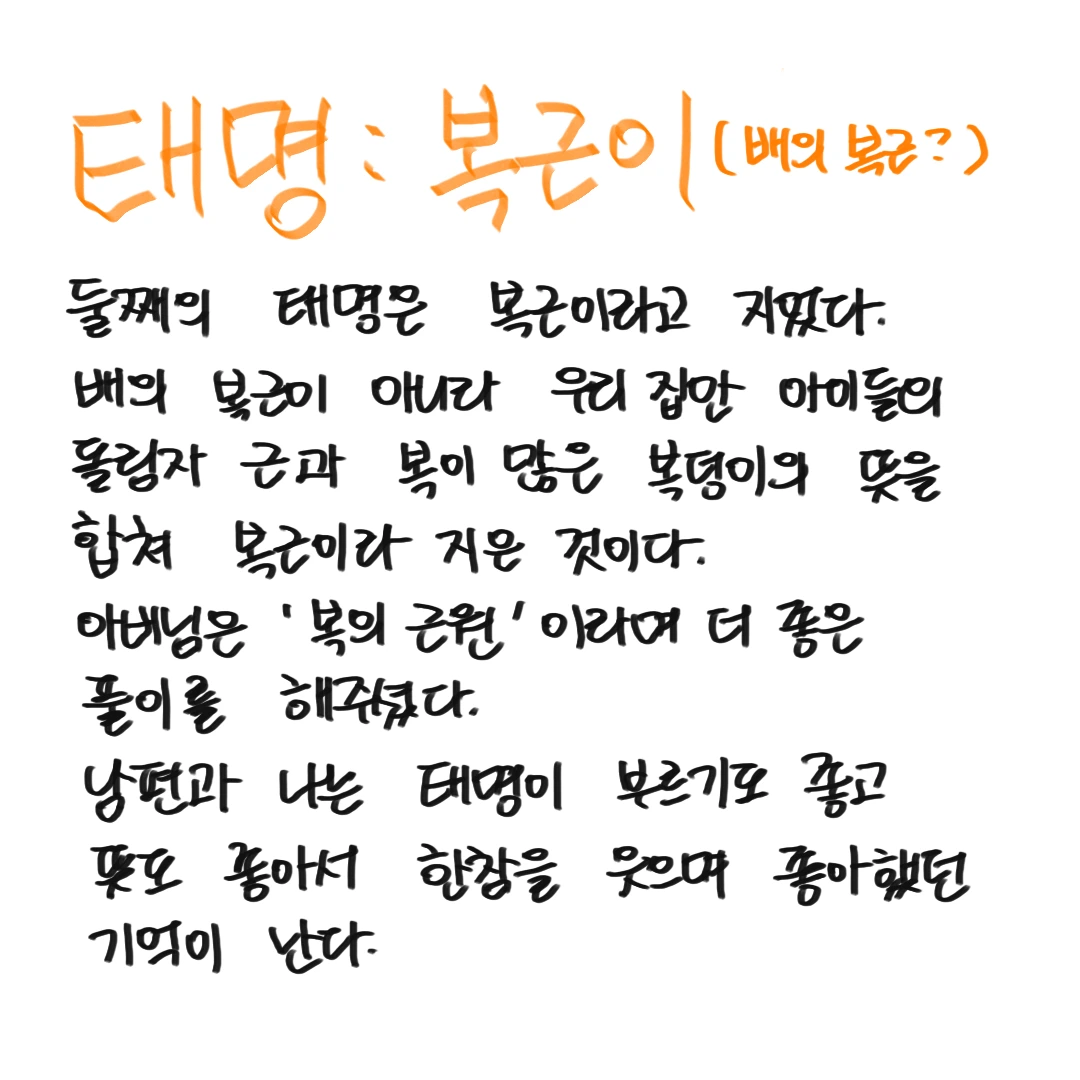 태명: 복근이 (배의 복근?)
둘째의 태명은 복근이라고 지었다.
배의 복근이 아니라 우리 집안 아이들의
돌림자 근과 복이 많은 복덩이의 뜻을
합쳐 복근이라 지은 것이다.
아버님은 '복의 근원'이라며 더 좋은
풀이를 해주셨다.
남편과 나는 태명이 부르기도 좋고
뜻도 좋아서 한참을 웃으며 좋아했던
기억이 난다.